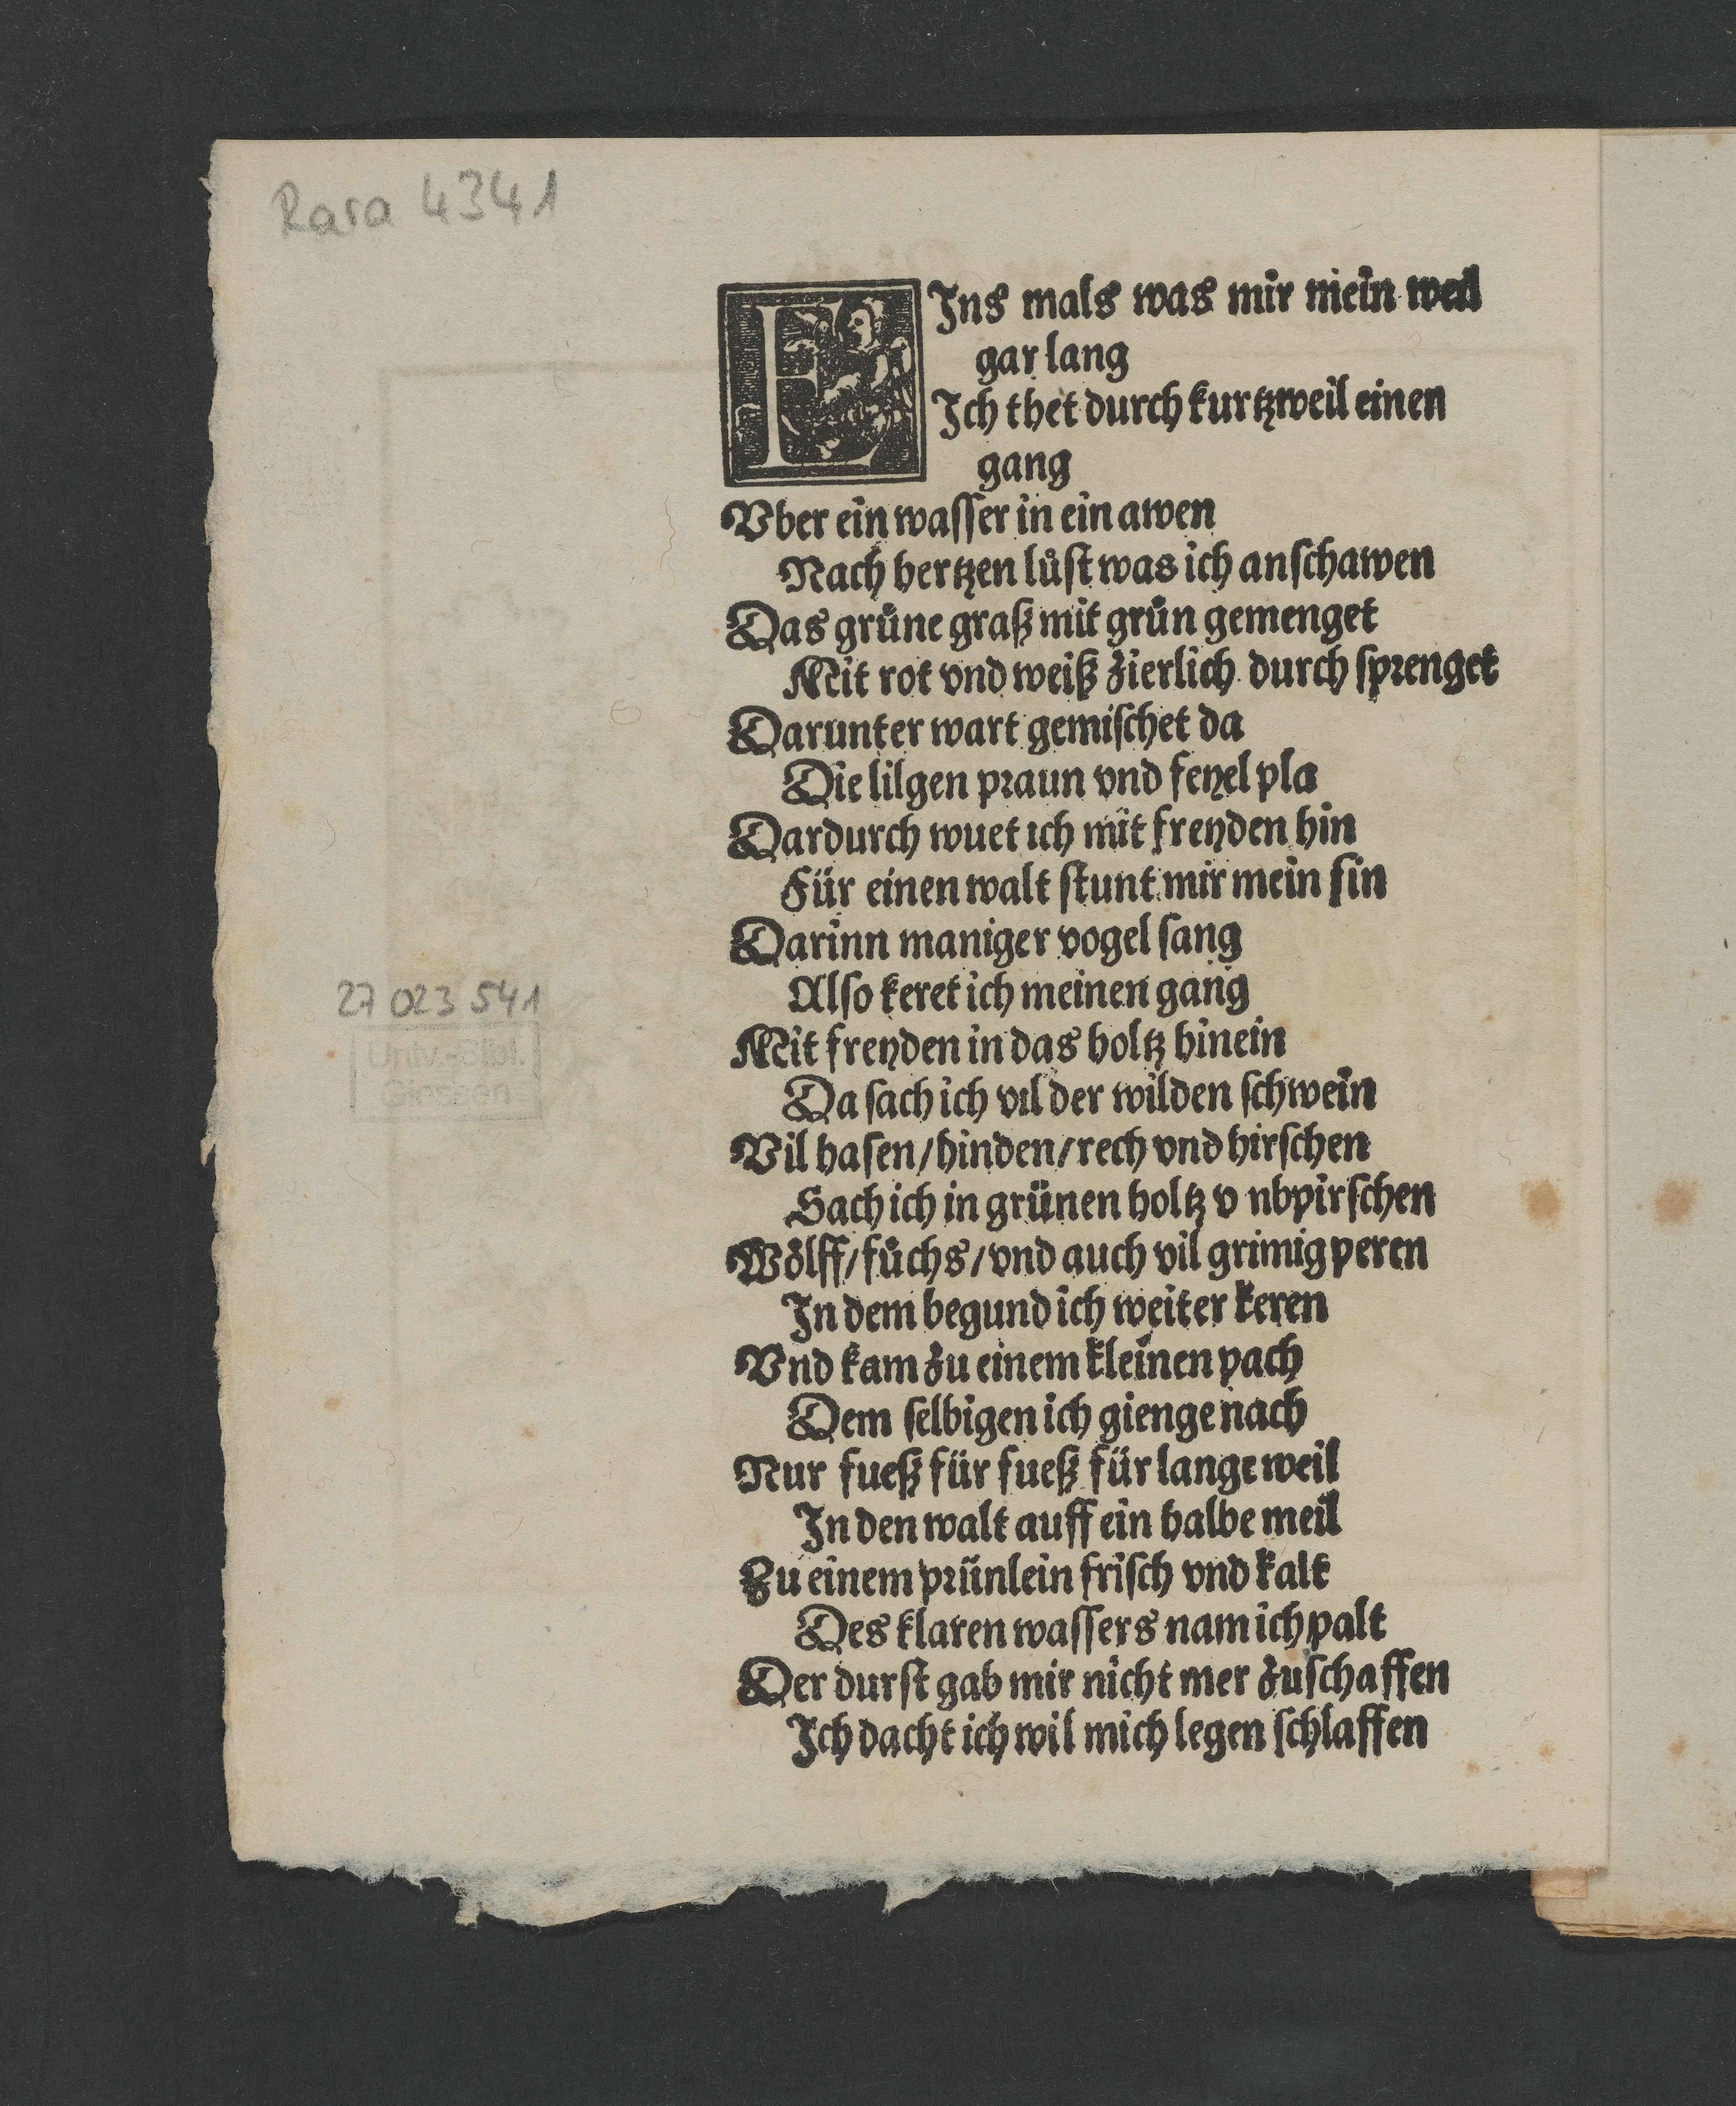 Rara 4341
EIns mals was mir mein weil
gar lang
Ich thet durch kurtzweil einen
gang
Vber ein wasser in ein awen
Nach hertzen lůst was ich anschawen
Das grůne graß mit grůn gemenget
Mit rot vnd weiß zierlich durch sprenget
Darunter wart gemischet da
Die lilgen praun vnd feyel pla
Dardurch wuet ich mit freyden hin
Für einen walt stunt mir mein sin
Darinn maniger vogel sang
Also keret ich meinen gang
Mit freyden in das holtz hinein
Da sach ich vil der wilden schwein
Vil hasen/hinden/rech vnd hirschen
Sach ich in grünen holtz v nbpirschen
Wölff/fůchs/vnd auch vil grimig peren
In dem begund ich weiter keren
Vnd kam zu einem kleinen pach
Dem selbigen ich gienge nach
Nur fueß für fueß für lange weil
In den walt auff ein halbe meil
Zu einem prünlein frisch vnd kalt
Des klaren wassers nam ich palt
Der durst gab mir nicht mer zuschaffen
Ich dacht ich wil mich legen schlaffen
27 023 541
Univ.-Bibl.
Giessen